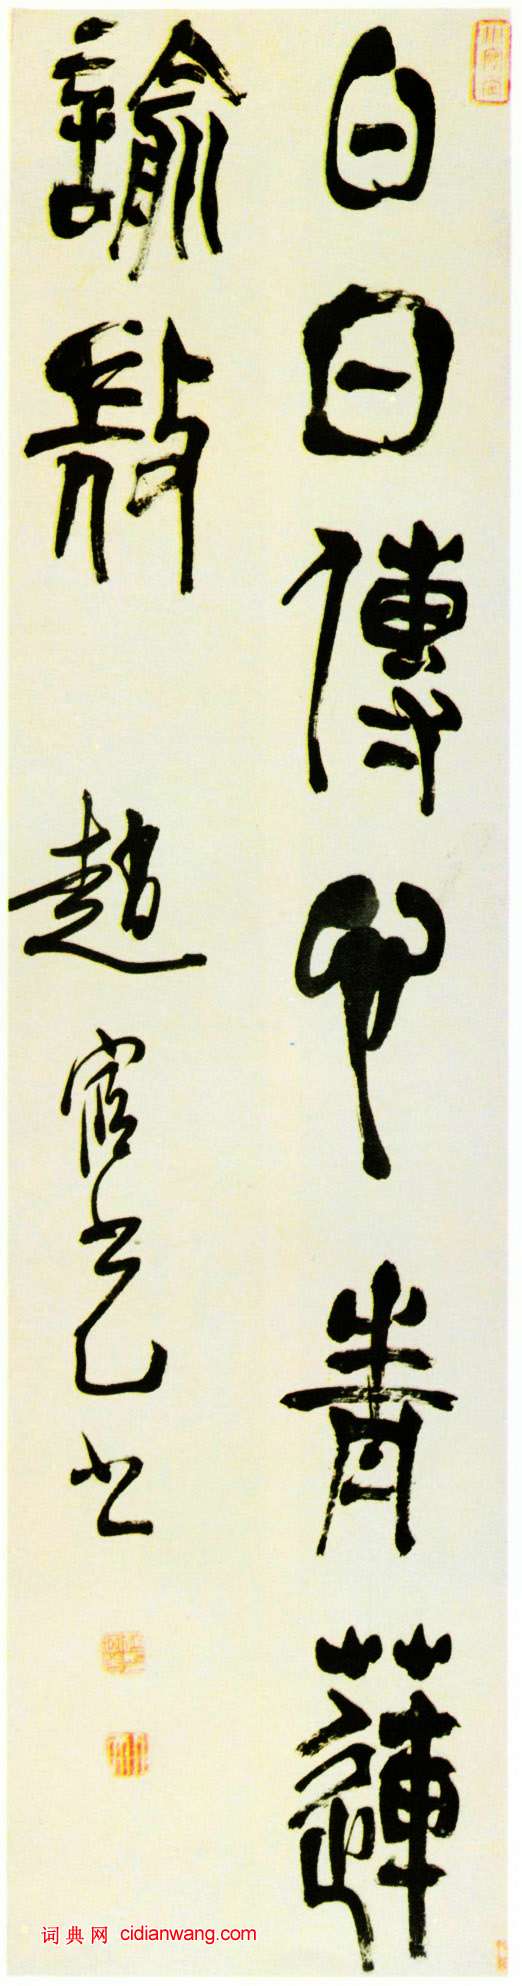 白日傳心青蓮
諭𢼸 趙宧光書
词典网 cidianwang.com